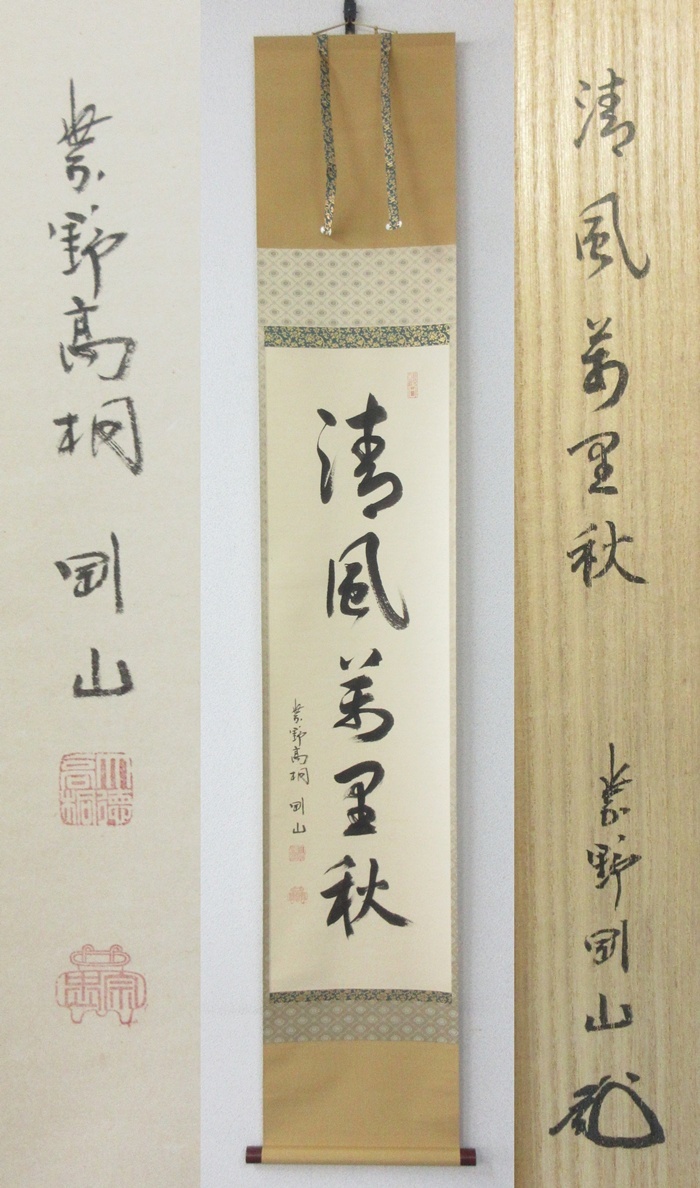 紫野高桐 剛山
大德
高桐
清風萬里秋
紫野高桐 剛山
清風萬里秋
紫野剛山